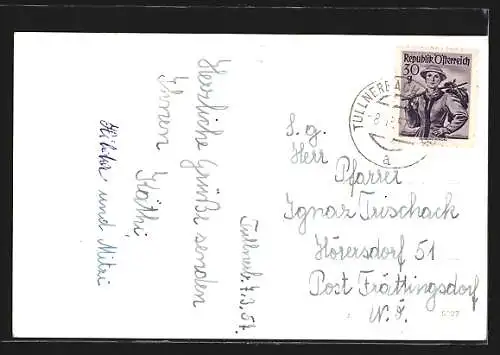 Tullnerb. 7.3.57.
Herzliche Grüße senden
Ihnen
Käthi
und Mitzi
Republik Österreich
30
g
TULLNERBA
a
S. g.
Herr
Pfarrer
Ignaz Trischack
Hörersdorf 51
Post Frättingsdorf
N. Ö.